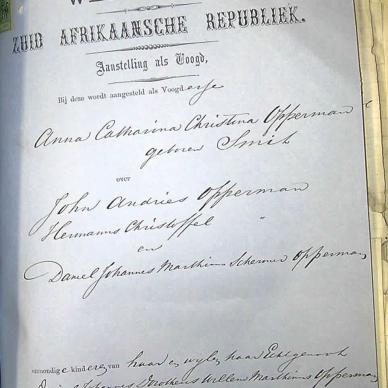 ZUID AFRIKAANSCHE REPUBLIEK.
Aanstelling als Voogd,
Bij deze wordt aangesteld als Voogdesse
Anna Catharina Christina Opperman
geboren Smit
over
John Andries Opperman
Hermanus Christoffel "
en
Daniel Johannes Marthinus Scheruer Opperman
minderjarige kinderen van haar en wylen haar Echtgenoot
Johannes Dorotheus Willem Marthinus Opperman